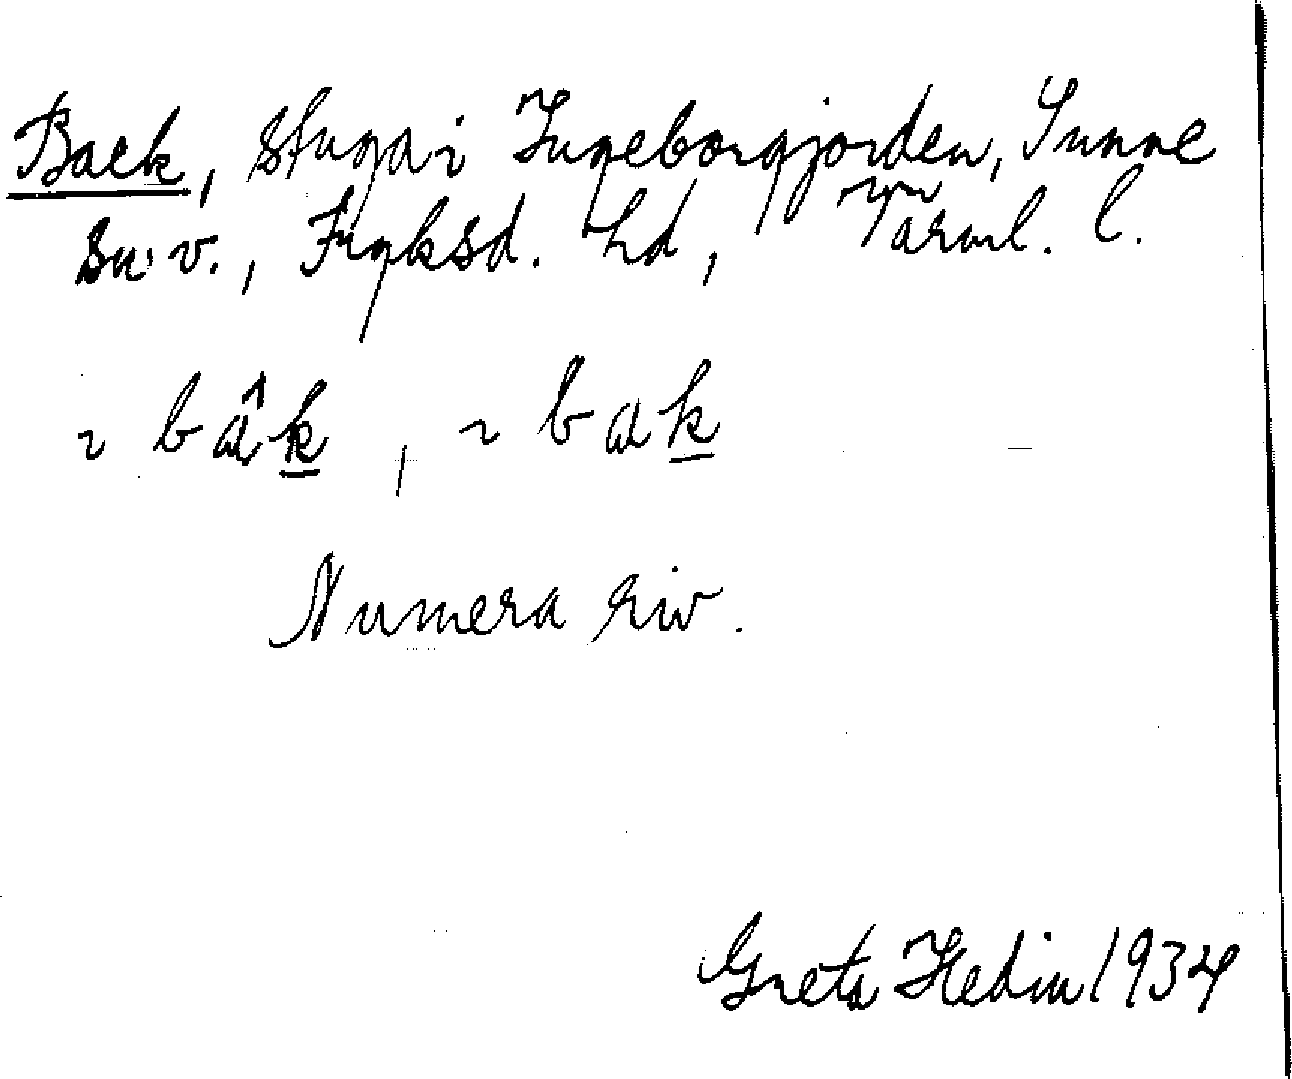 Back, stuga i Ingeborgjorden, Sunne
sn v., Fryksd. hd, Värml. l.
ı bâk, ı bak
Numera riv.
Greta Hedin 1934